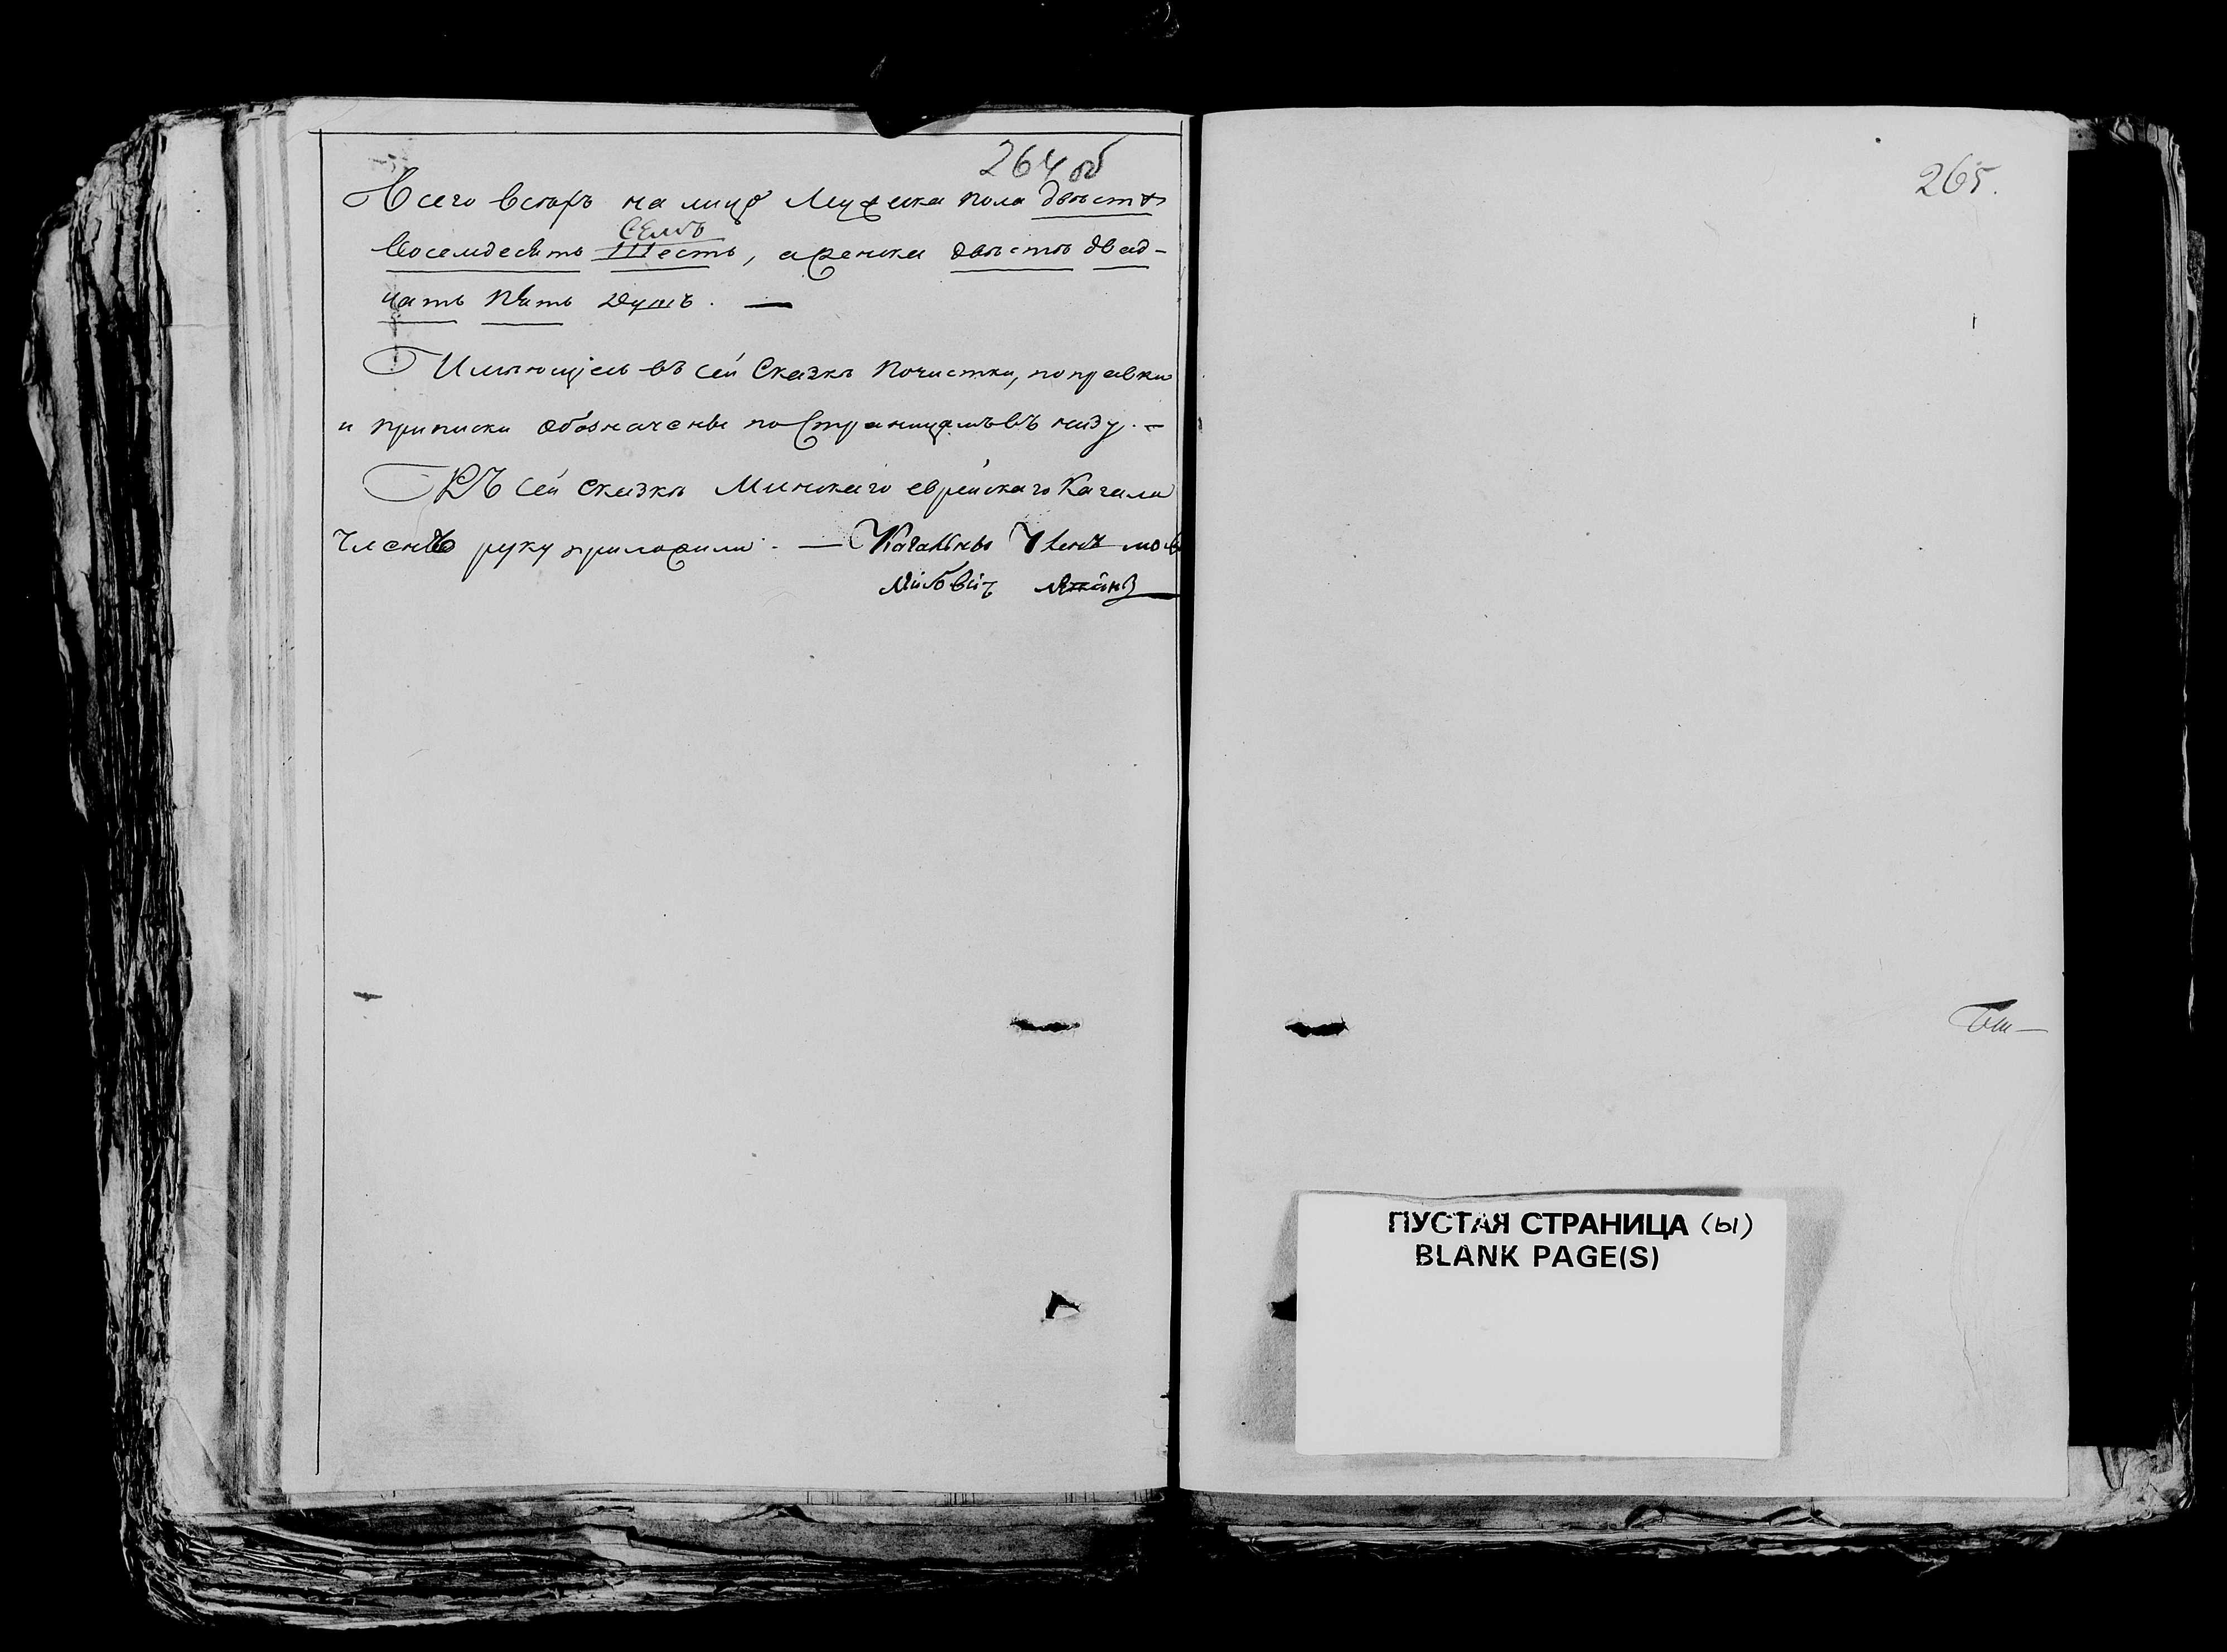 264 об
Всего вообще на лицо Мужеска пола двѣстѣ
Семь
Восемдесятъ Шесть, а женска двѣстѣ двад-
цать пять душъ. —
Имѣющіеся въ сей Сказкѣ почистки, поправки
и приписки обозначены по Страницамъ въ низу. —
Къ сей Сказкѣ Минскаго еврейскаго Кагала
члены руку приложили. — Кагальны Членъ
265.
ПУСТАЯ СТРАНИЦА (ы)
BLANK PAGE(S)